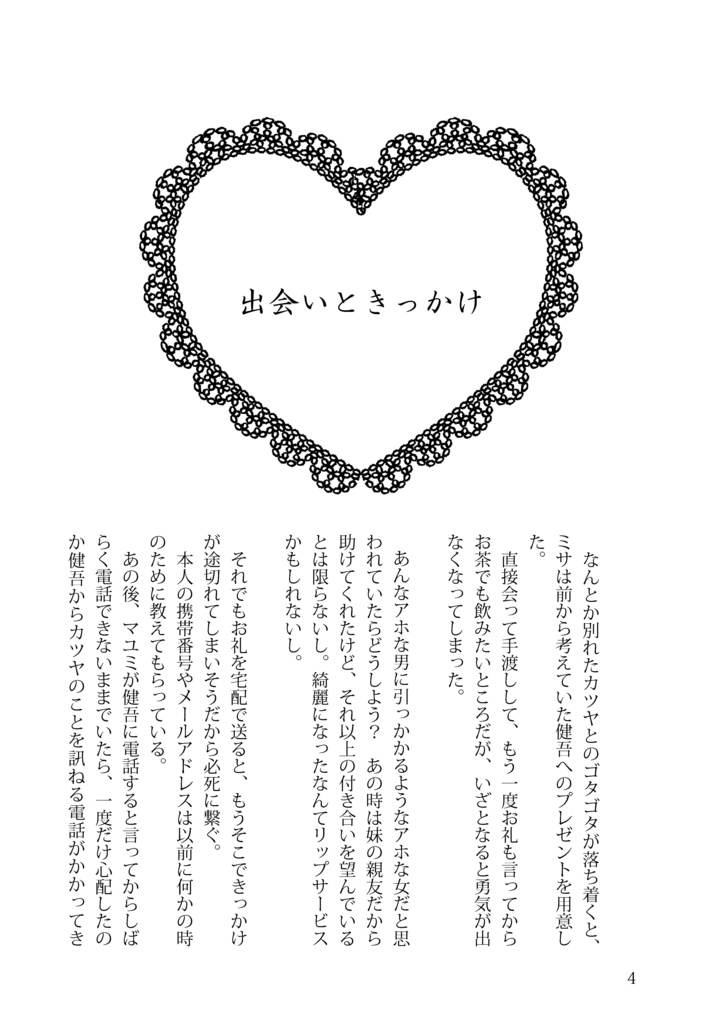 出会いときっかけ
なんとか別れたカツヤとのゴタゴタが落ち着くと、
ミサは前から考えていた健吾へのプレゼントを用意し
た。
直接会って手渡しして、もう一度お礼も言ってから
お茶でも飲みたいところだが、いざとなると勇気が出
なくなってしまった。
あんなアホな男に引っかかるようなアホな女だと思
われていたらどうしよう？　あの時は妹の親友だから
助けてくれたけど、それ以上の付き合いを望んでいる
とは限らないし。綺麗になったなんてリップサービス
かもしれないし。
それでもお礼を宅配で送ると、もうそこできっかけ
が途切れてしまいそうだから必死に繋ぐ。
本人の携帯番号やメールアドレスは以前に何かの時
のために教えてもらっている。
あの後、マユミが健吾に電話すると言ってからしば
らく電話できないままでいたら、一度だけ心配したの
か健吾からカツヤのことを訊ねる電話がかかってき
4